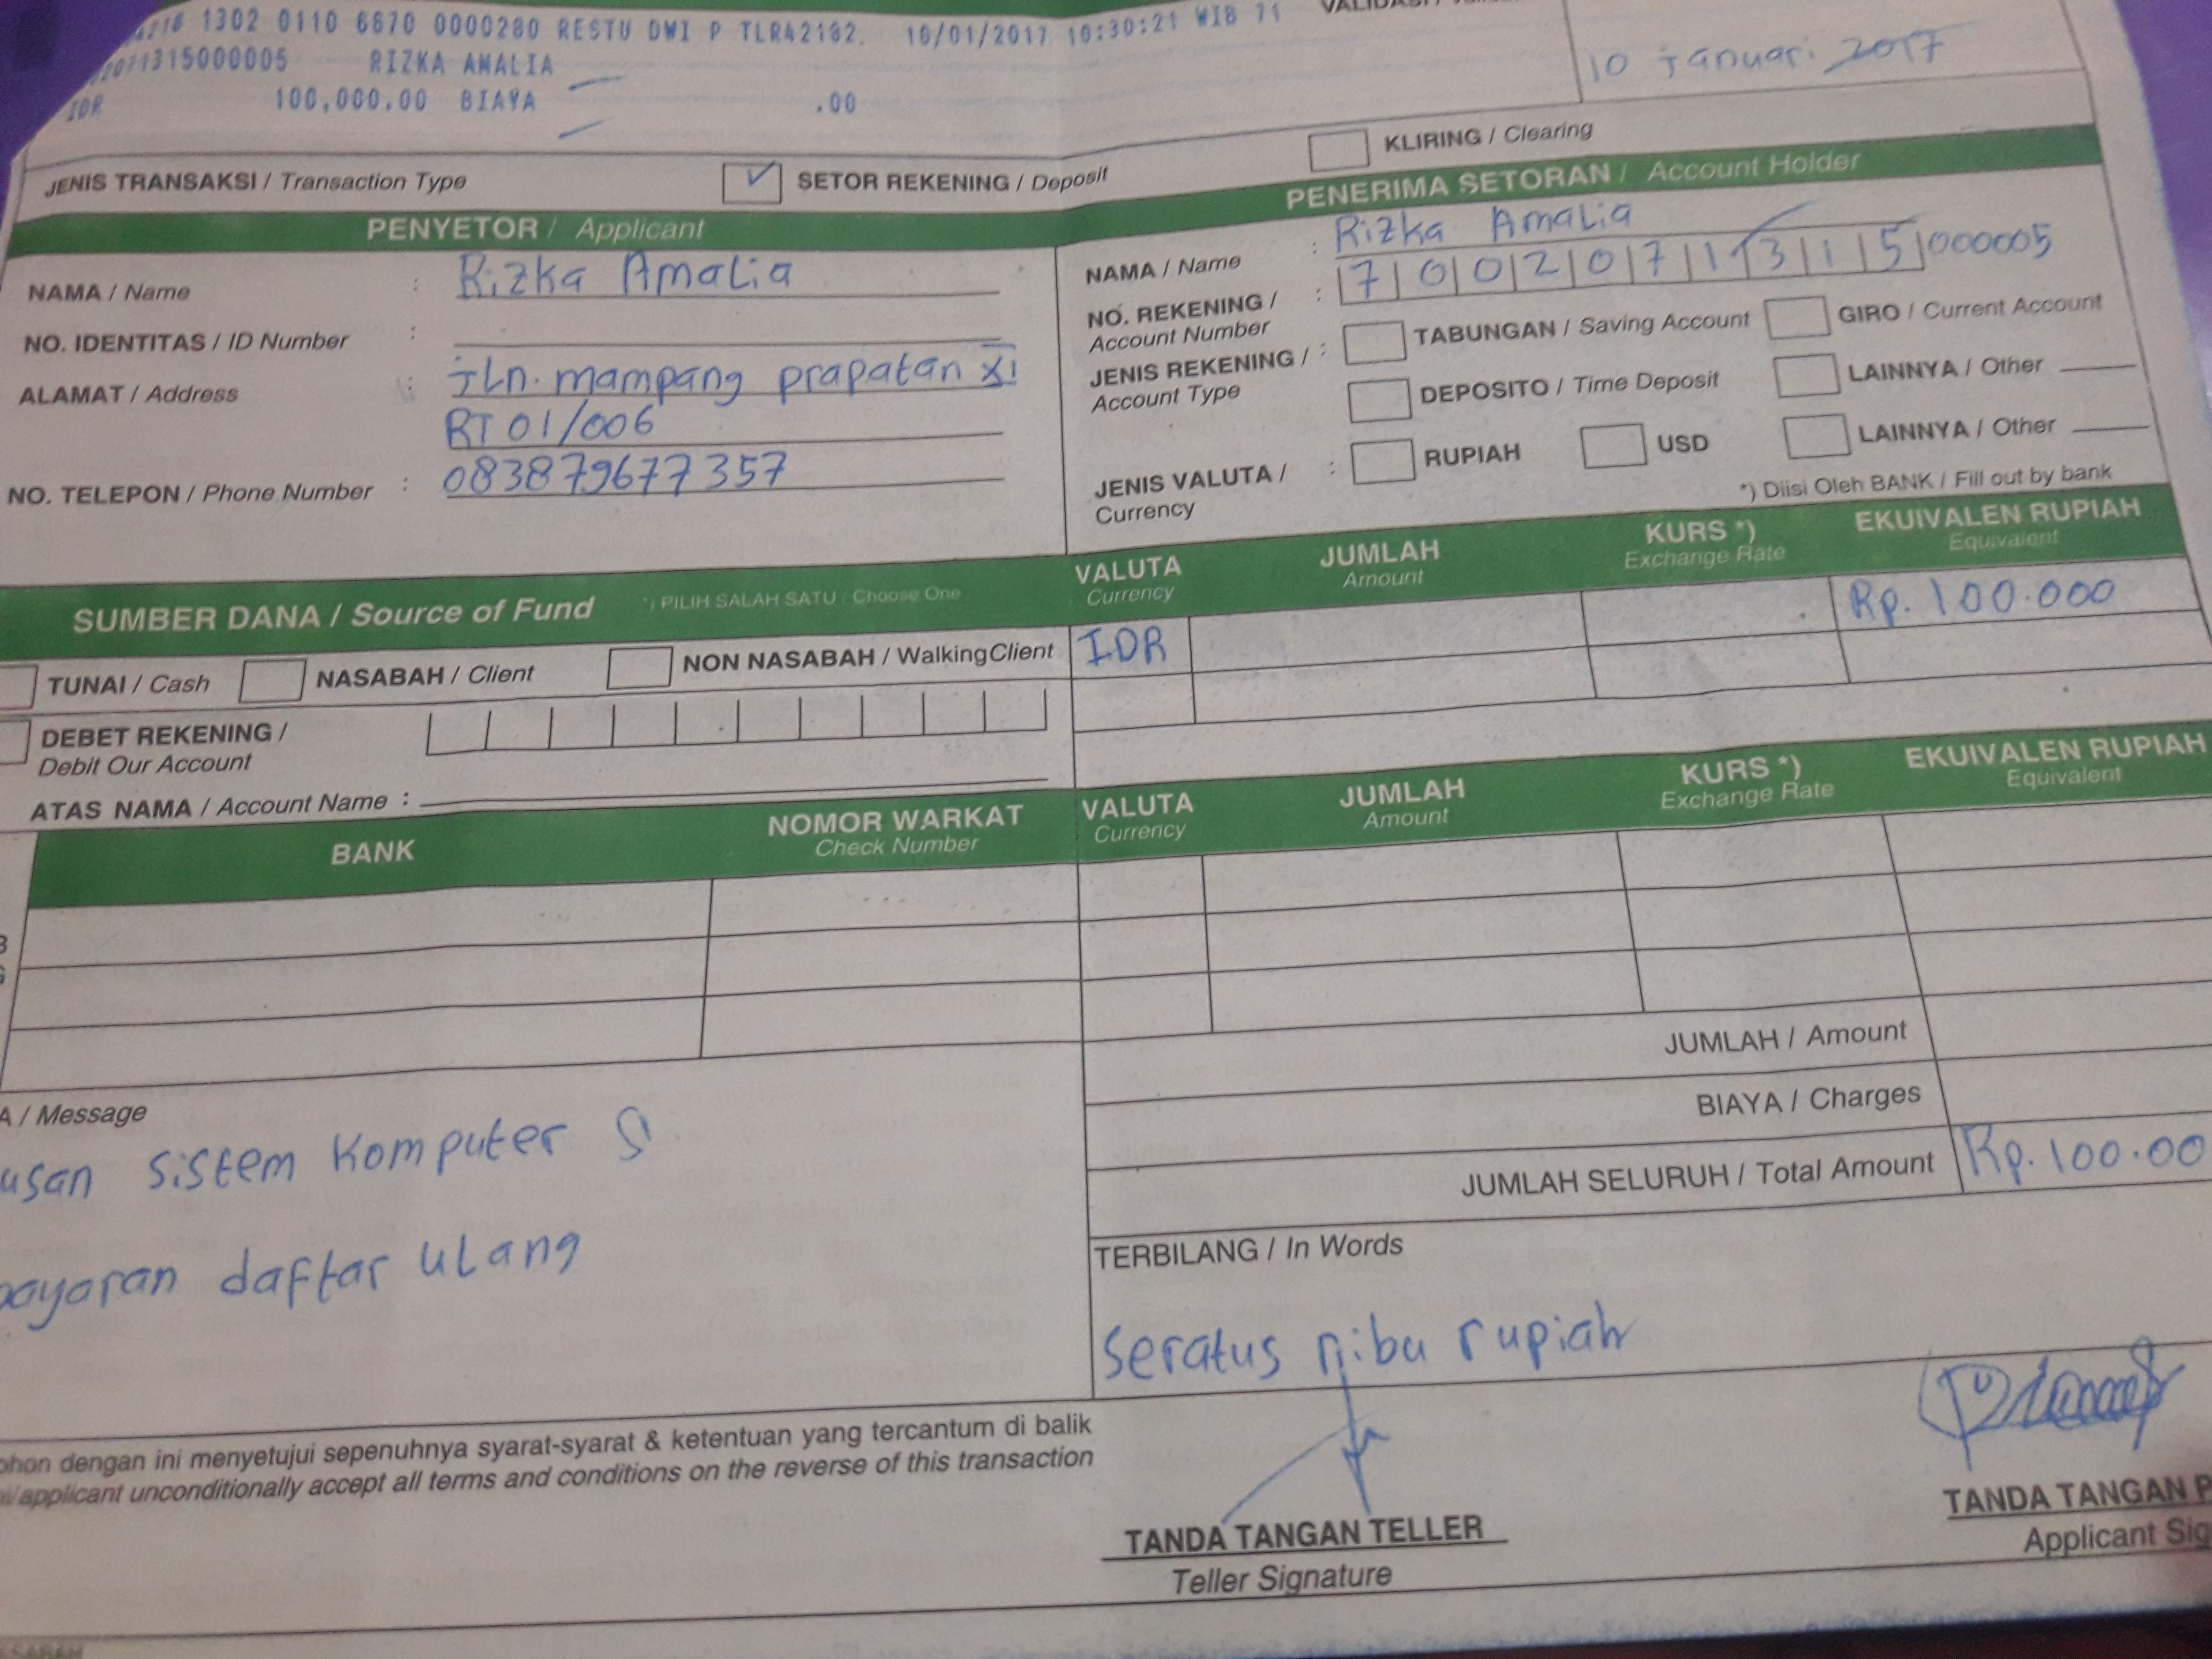 1302 0110 6670 0000280 RESTU DWI P TLR42182. 10/01/2017 10:30:21 WIB 71
2071315000005 RIZKA AMALIA
IDR 100,000.00 BIAYA .00
10 januari 2017
JENIS TRANSAKSI / Transaction Type SETOR REKENING / Deposit KLIRING / Clearing
PENYETOR / Applicant
NAMA / Name : Rizka Amalia
NO. IDENTITAS / ID Number :
ALAMAT / Address : jln. mampang prapatan XI
RT 01/006
NO. TELEPON / Phone Number : 083879677357
PENERIMA SETORAN / Account Holder
NAMA / Name : Rizka Amalia
NO. REKENING / : 7002071315000005
Account Number
JENIS REKENING / : TABUNGAN / Saving Account GIRO / Current Account
Account Type DEPOSITO / Time Deposit LAINNYA / Other
JENIS VALUTA / : RUPIAH USD LAINNYA / Other
Currency
*) Diisi Oleh BANK / Fill out by bank
SUMBER DANA / Source of Fund *) PILIH SALAH SATU / Choose One
TUNAI / Cash NASABAH / Client NON NASABAH / WalkingClient
DEBET REKENING /
Debit Our Account
ATAS NAMA / Account Name :
VALUTA JUMLAH KURS *) EKUIVALEN RUPIAH
Currency Amount Exchange Rate Equivalent
IDR Rp. 100.000
BANK NOMOR WARKAT
Check Number
VALUTA JUMLAH KURS *) EKUIVALEN RUPIAH
Currency Amount Exchange Rate Equivalent
JUMLAH / Amount
BIAYA / Charges
JUMLAH SELURUH / Total Amount Rp. 100.00
A / Message
usan sistem Komputer
bayaran daftar ulang
TERBILANG / In Words
seratus ribu rupiah
ohon dengan ini menyetujui sepenuhnya syarat-syarat & ketentuan yang tercantum di balik
/applicant unconditionally accept all terms and conditions on the reverse of this transaction
TANDA TANGAN TELLER
Teller Signature
TANDA TANGAN P
Applicant Sig